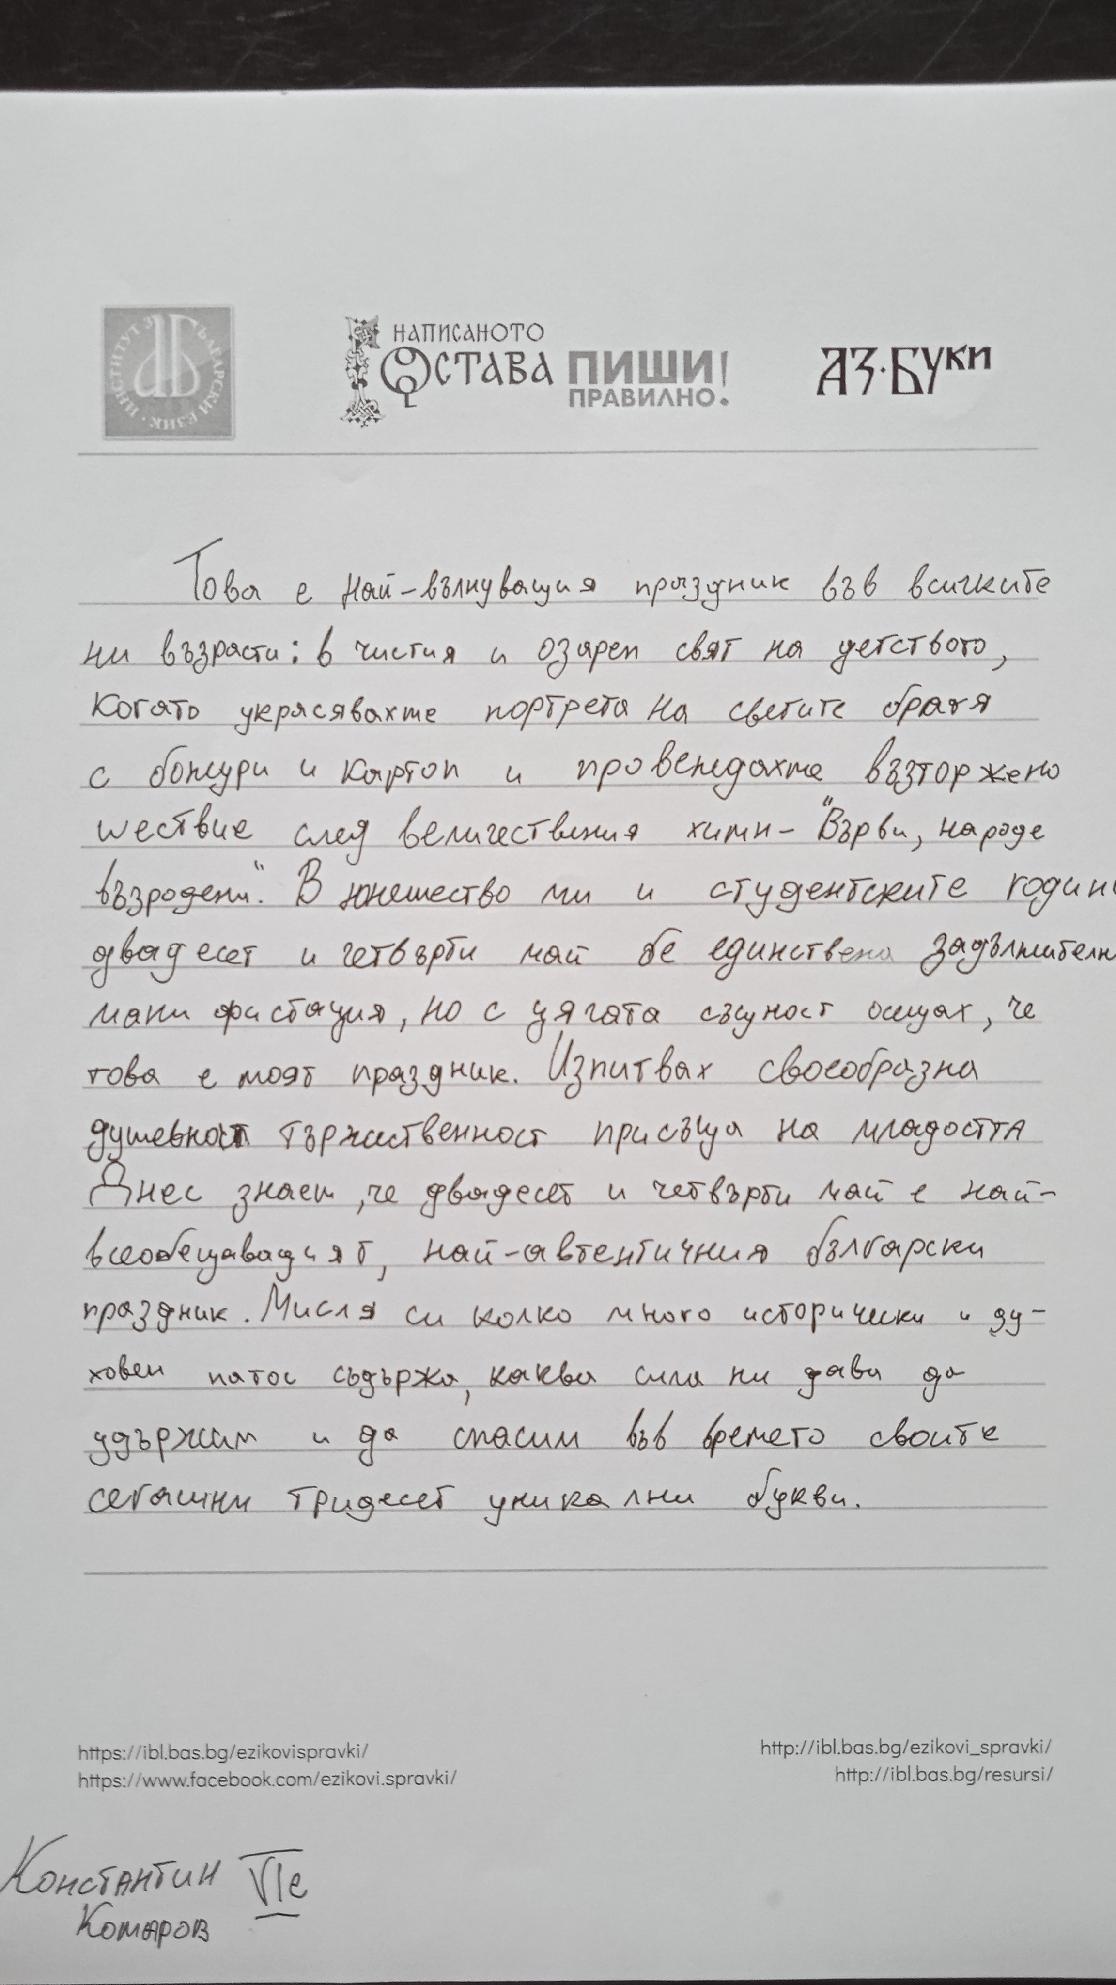 ИНСТИТУТ ЗА БЪЛГАРСКИ ЕЗИК
НАПИСАНОТО
ОСТАВА ПИШИ
ПРАВИЛНО!
АЗ·БУКИ
Това е най-вълнуващия празник във всичките
ни възрасти: в чистия и озарен свят на детството,
когато украсявахме портрета на светите братя
с божури и картоп и провеждахме възторжено
шествие след величествения химн- "Върви, народе
възродени". В юношество ми и студентските години
двадесет и четвърти май бе единствена задължителна
манифистация, но с цялата същност ощах, че
това е моят празник. Изпитвах своеобразна
душевност тържественност присъща на младостта
Днес знаем, че двадесет и четвърти май е най-
всеобещаващият, най-автентичния български
празник. Мисля си колко много исторически и ду-
ховен патос съдържа, каква сила ни дава да
удържим и да спасим във времето своите
сегашни тридесет уникални букви.
https://ibl.bas.bg/ezikovispravki/
http://ibl.bas.bg/ezikovi_spravki/
https://www.facebook.com/ezikovi.spravki/
http://ibl.bas.bg/resursi/
Константин VIе
Комаров